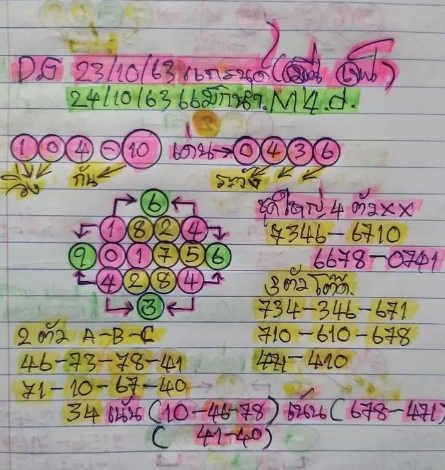 23/10/63
24/10/63 M4.d.
1 0 4 - 10 เด่น → 0 4 3 6
กัน ระวัง
6
1 8 2 4
9 0 1 7 5 6
4 2 8 4
3
ชุดใหญ่ 4 ตัว xx
7346 - 6710
6678 - 0741
3 ตัว โต๊ด
734 - 346 - 671
710 - 610 - 678
471 - 410
2 ตัว A - B - C
46 - 73 - 78 - 41
71 - 10 - 67 - 40
34 เน้น (10 - 46 - 78) เน้น (678 - 471)
(41 - 40)